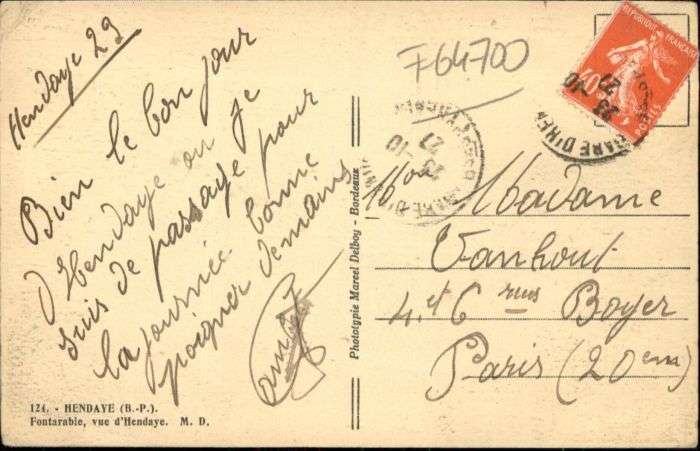 Hendaye 29
Bien le bon jour
d'Hendaye ou je
suis de passage pour
la journée bonne
poigner demains
124. - HENDAYE (B.-P.).
Fontarabie, vue d'Hendaye. M. D.
Phototypie Marcel Delboy - Bordeaux
F64700
REPUBLIQUE FRANÇAISE
40
23 -10
27
GARE D'HEN
23 -10
27
GARE D'
Madame
Vanhout
4 et 6 rues Boyer
Paris (20em)